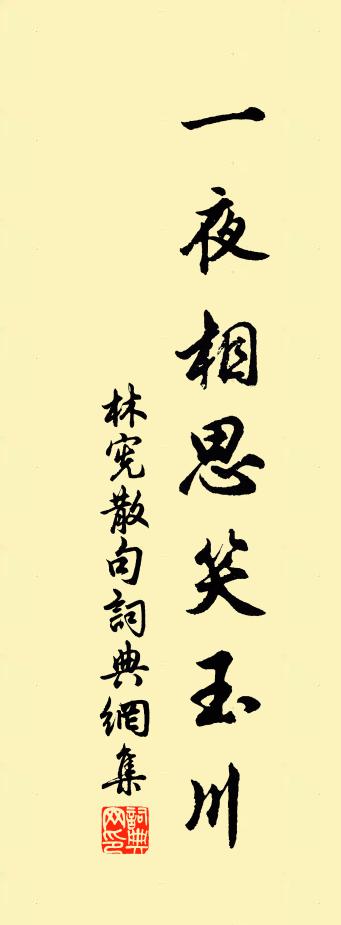 一夜相思笑玉川
林宪散句詞典網集
詞典網印